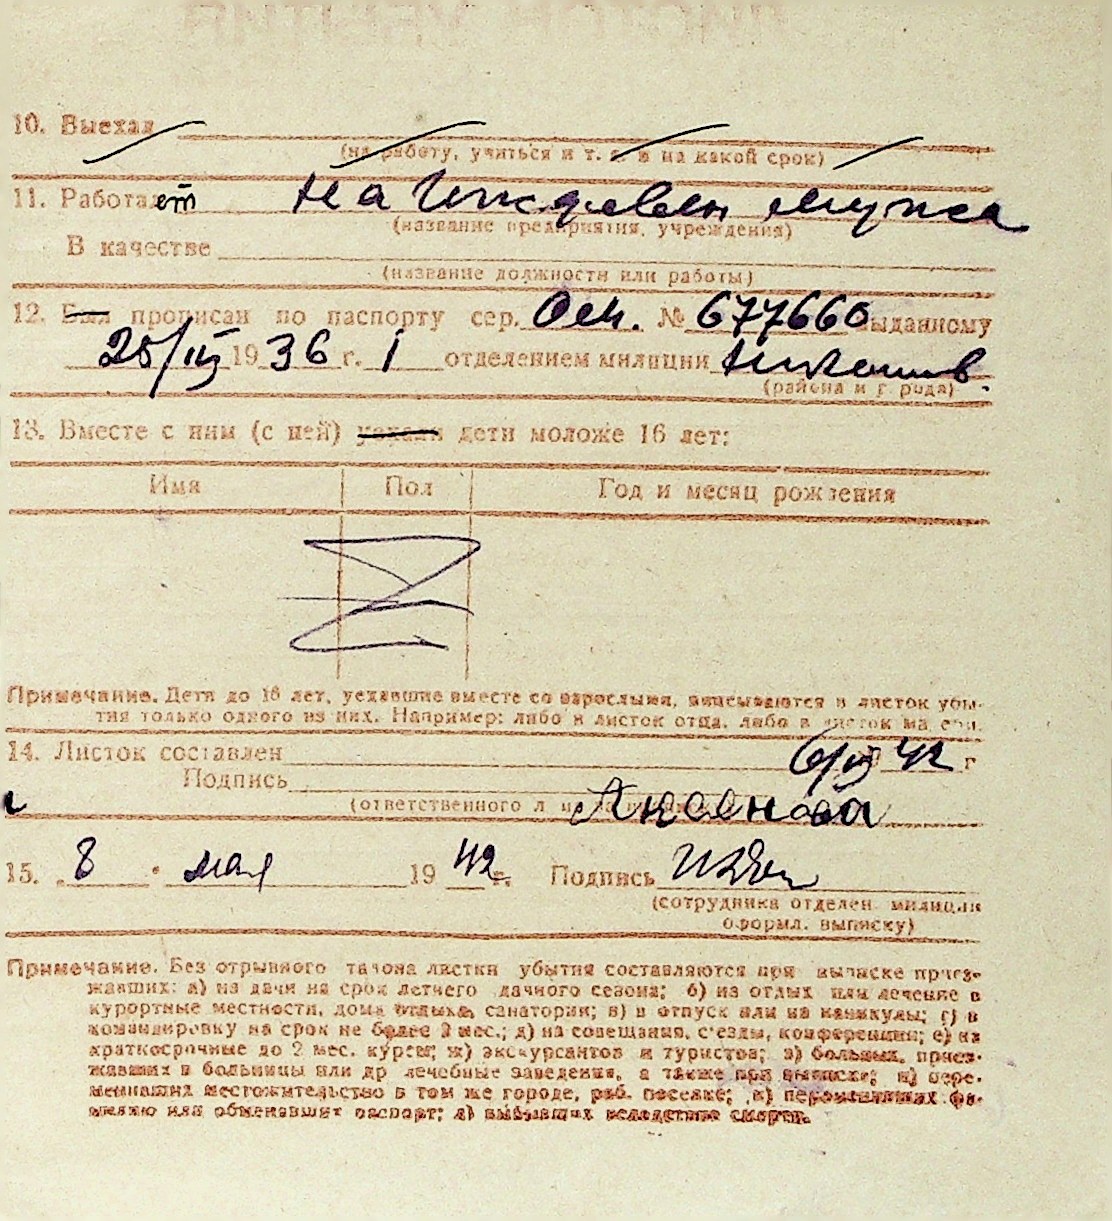 10. Выехал
(на работу, учиться и т. д. и на какой срок)
11. Работает На Иждевен мужа
(название предприятия, учреждения)
В качестве
(название должности или работы)
12. Был прописан по паспорту сер. № 677660 выданному
25/III 1936 г. 1 отделением милиции
(района и города)
13. Вместе с ним (с ней) уехали дети моложе 16 лет:
Имя Пол Год и месяц рождения
Примечание. Дети до 16 лет, уехавшие вместе со взрослыми, вписываются в листок убы-
тия только одного из них. Например: либо в листок отца, либо в листок матери.
14. Листок составлен 42 г
Подпись
(ответственного л
15. 8 мая 1942 г. Подпись
(сотрудника отделен. милиции
оформл. выписку)
Примечание. Без отрывного талона листки убытия составляются при выписке приез-
жавших: а) на дачи на срок летнего дачного сезона; б) на отдых или лечение в
курортные местности, дома отдыха, санатории; в) в отпуск или на каникулы; г) в
командировку на срок не более 2 мес.; д) на совещания, съезды, конференции; е) на
краткосрочные до 2 мес. курсы; ж) экскурсантов и туристов; з) больных, приез-
жавших в больницы или др лечебные заведения, а также при выписке; и) пере-
менивших местожительство в том же городе, раб. поселке; к) переменивших фа-
милию или обменявших паспорт; л) выбывших вследствие смерти.